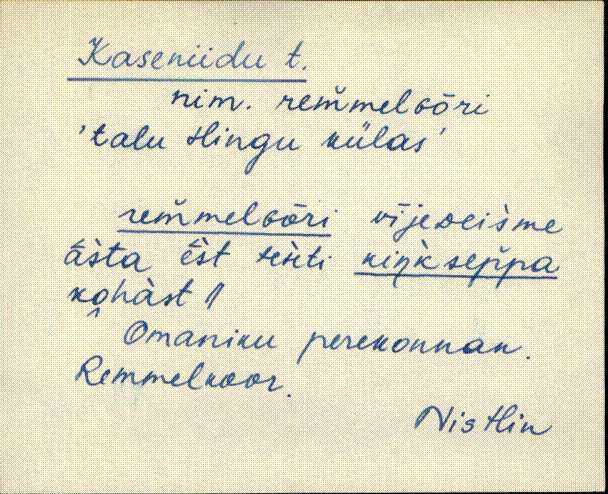 Kaseniidu t.
nim. rem̆melɢōri
'talu Hingu külas'
rem̆melɢōri vījeᴅeis̀me
ās̀ta ēs̀t sèǹti kiŋ̀k sep̆pa
kohàst //
Omaniku perekonnan.
Remmelkoor.
Nistlin